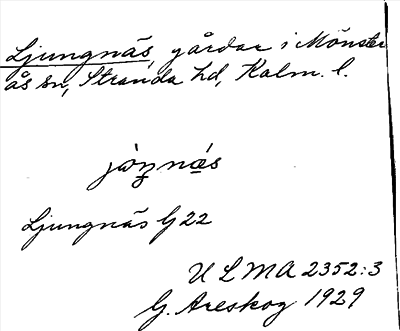 Ljungnäs, gårdar i Mönster
ås sn, Stranda hd, Kalm. l.
Ljungnäs G 22
ULMA 2352:3
G. Areskog 1929